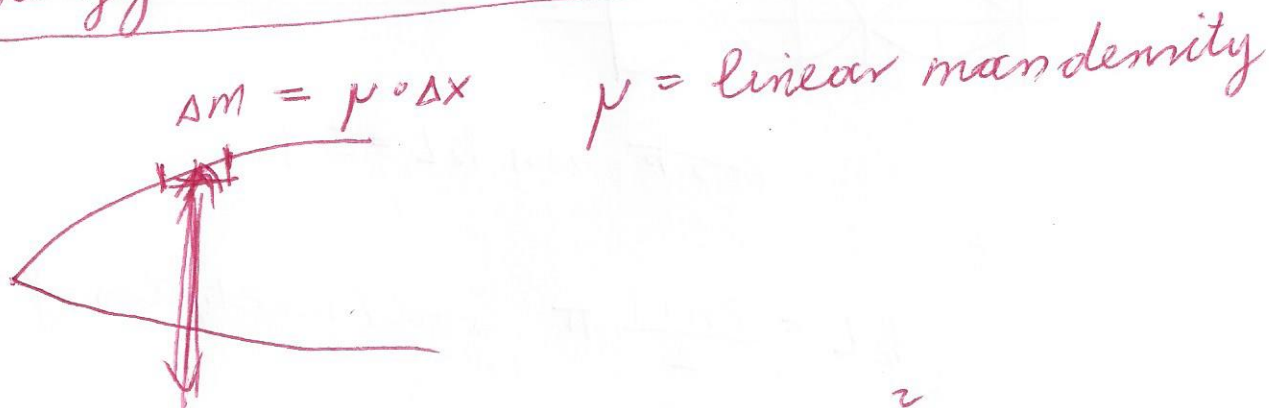 Δm = μ · Δx μ = linear mass density
2